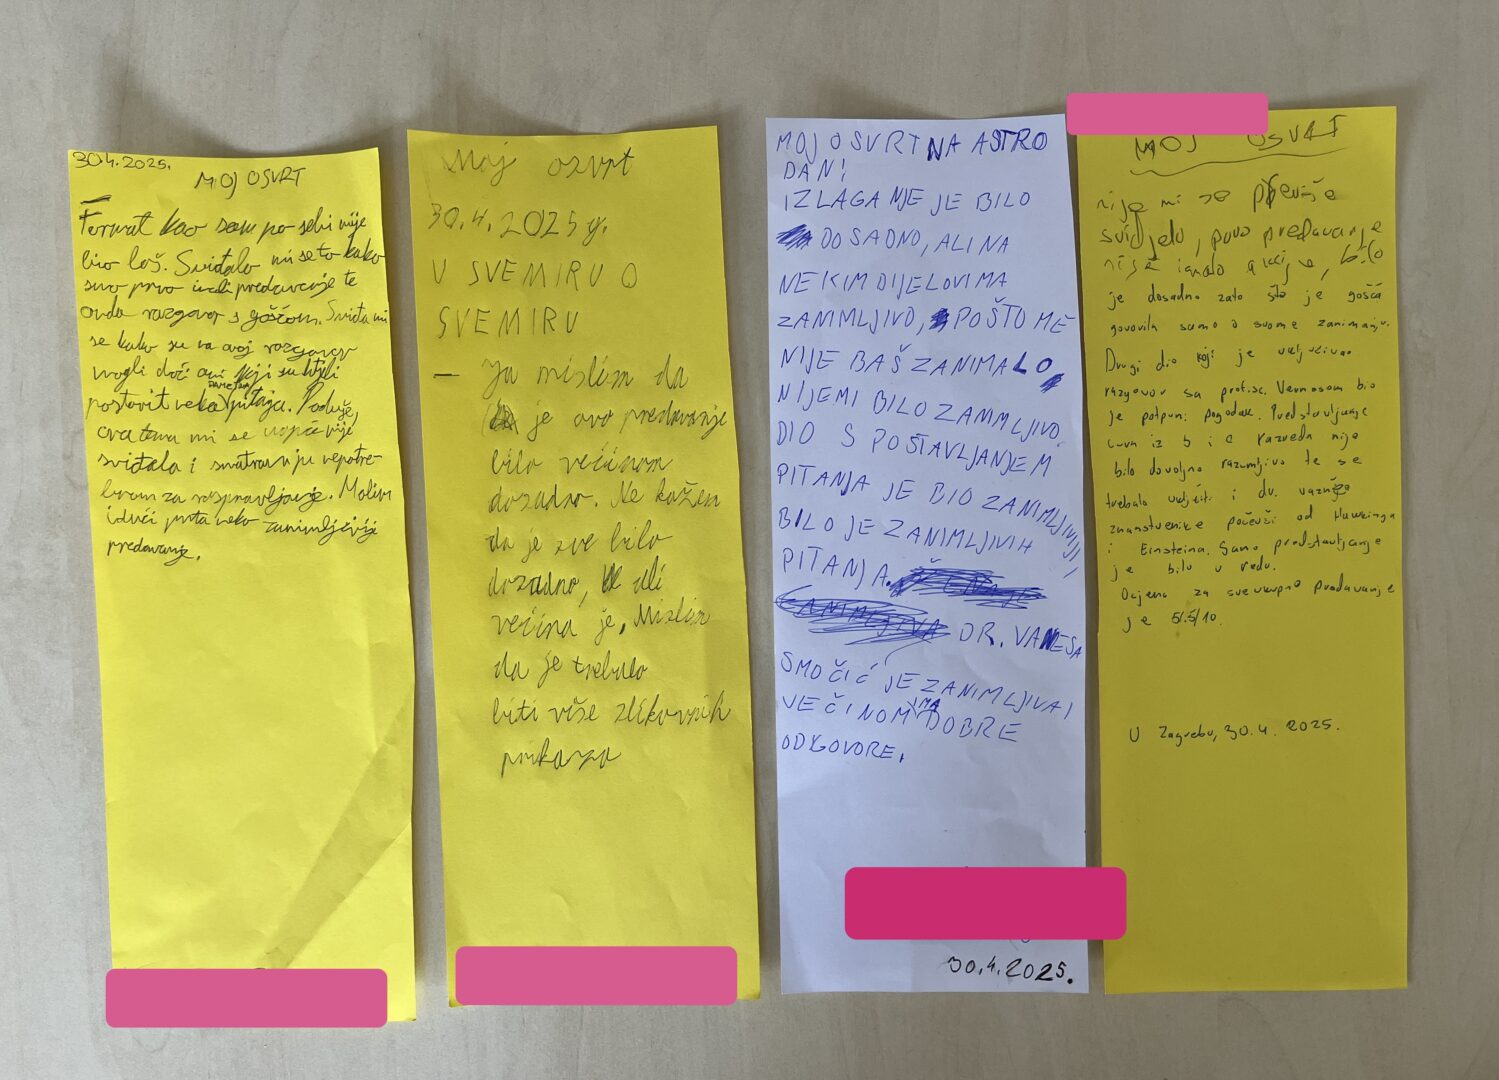 30.4.2025.
MOJ OSVRT
Format kao sam po sebi nije
bio loš. Sviđalo mi se to kako
smo prvo imali predavanje te
onda razgovor s gošćom. Sviđa mi
se kako su na ovaj razgovor
mogli doći oni koji su htjeli
postavit neka PAMETNA pitanja. Poduže,
ova tema mi se uopće nije
sviđala i smatram ju nepotre-
bnom za raspravljanje. Molim
idući puta neko zanimljivije
predavanje.
Moj osvrt
30.4.2025g.
U SVEMIRU O
SVEMIRU
– Ja mislim da
je ovo predavanje
bilo većinom
dosadno. Ne kažem
da je sve bilo
dosadno, ali
većina je. Mislim
da je trebalo
biti više slikovnih
prikaza
MOJ OSVRT NA ASTRO
DAN!
IZLAGANJE JE BILO
DOSADNO, ALI NA
NEKIM DIJELOVIMA
ZANIMLJIVO, POŠTO ME
NIJE BAŠ ZANIMALO
NIJE MI BILO ZANIMLJIVO.
DIO S POSTAVLJANJEM
PITANJA JE BIO ZANIMLJIVIJI,
BILO JE ZANIMLJIVIH
PITANJA.
DR. VANESA
SMOČIĆ JE ZANIMLJIVA I
VEČINOM IMA DOBRE
ODGOVORE.
30.4.2025.
MOJ OSVRT
nije mi se previše
svidjelo, prvo predavanje
nije imalo akcije, bilo
je dosadno zato što je gošća
govorila samo o svome zanimanju.
Drugi dio koji je uključivao
razgovor sa prof.sc. Vernesom bio
je potpuni pogodak. Predstavljanje
iz b i c razreda nije
bilo dovoljno razumljivo te se
trebalo uključiti i dr. važnije
znanstvenike počevši od Hawkinga
i Einsteina. Samo predstavljanje
je bilo u redu.
Ocjena za sveukupno predavanje
je 5.5/10.
U Zagrebu, 30.4.2025.